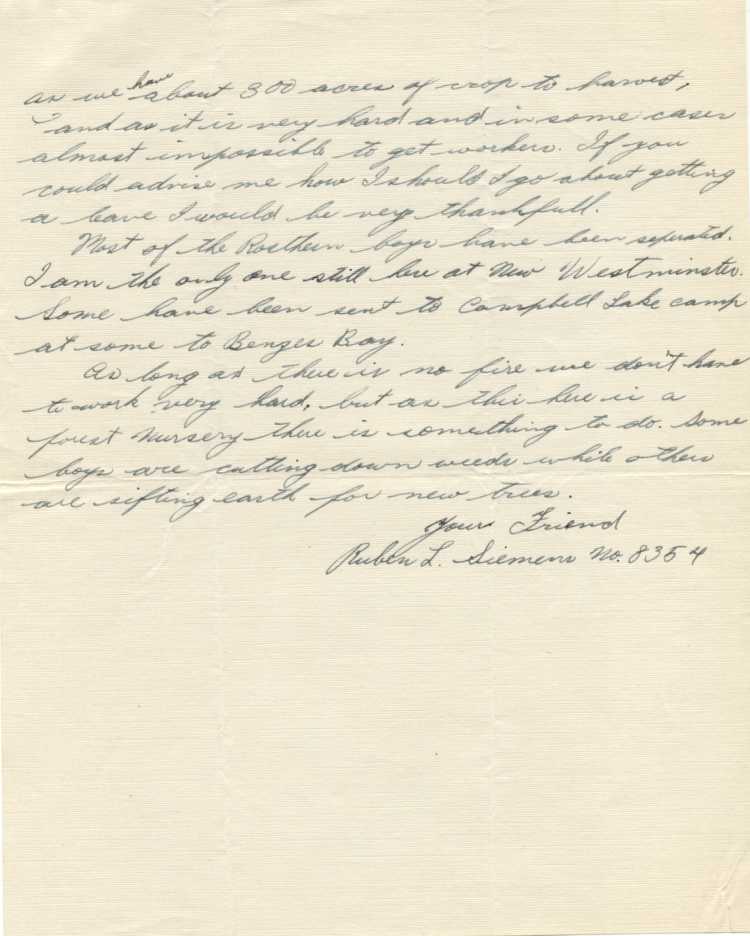 as we have about 300 acres of crop to harvest,
and as it is very hard and in some cases
almost impossible to get workers. If you
could advise me how I should I go about getting
a leave I would be very thankfull.
Most of the Rosthern boys have been seperated.
I am the only one still here at New Westminster.
Some have been sent to Campbell Lake camp
at some to Benges Bay.
As long as there is no fire we don't have
to work very hard, but as this here is a
forest nursery there is something to do. Some
boys are cutting down weeds while others
are sifting earth for new trees.
Your Friend
Ruben L. Siemens No. 8354